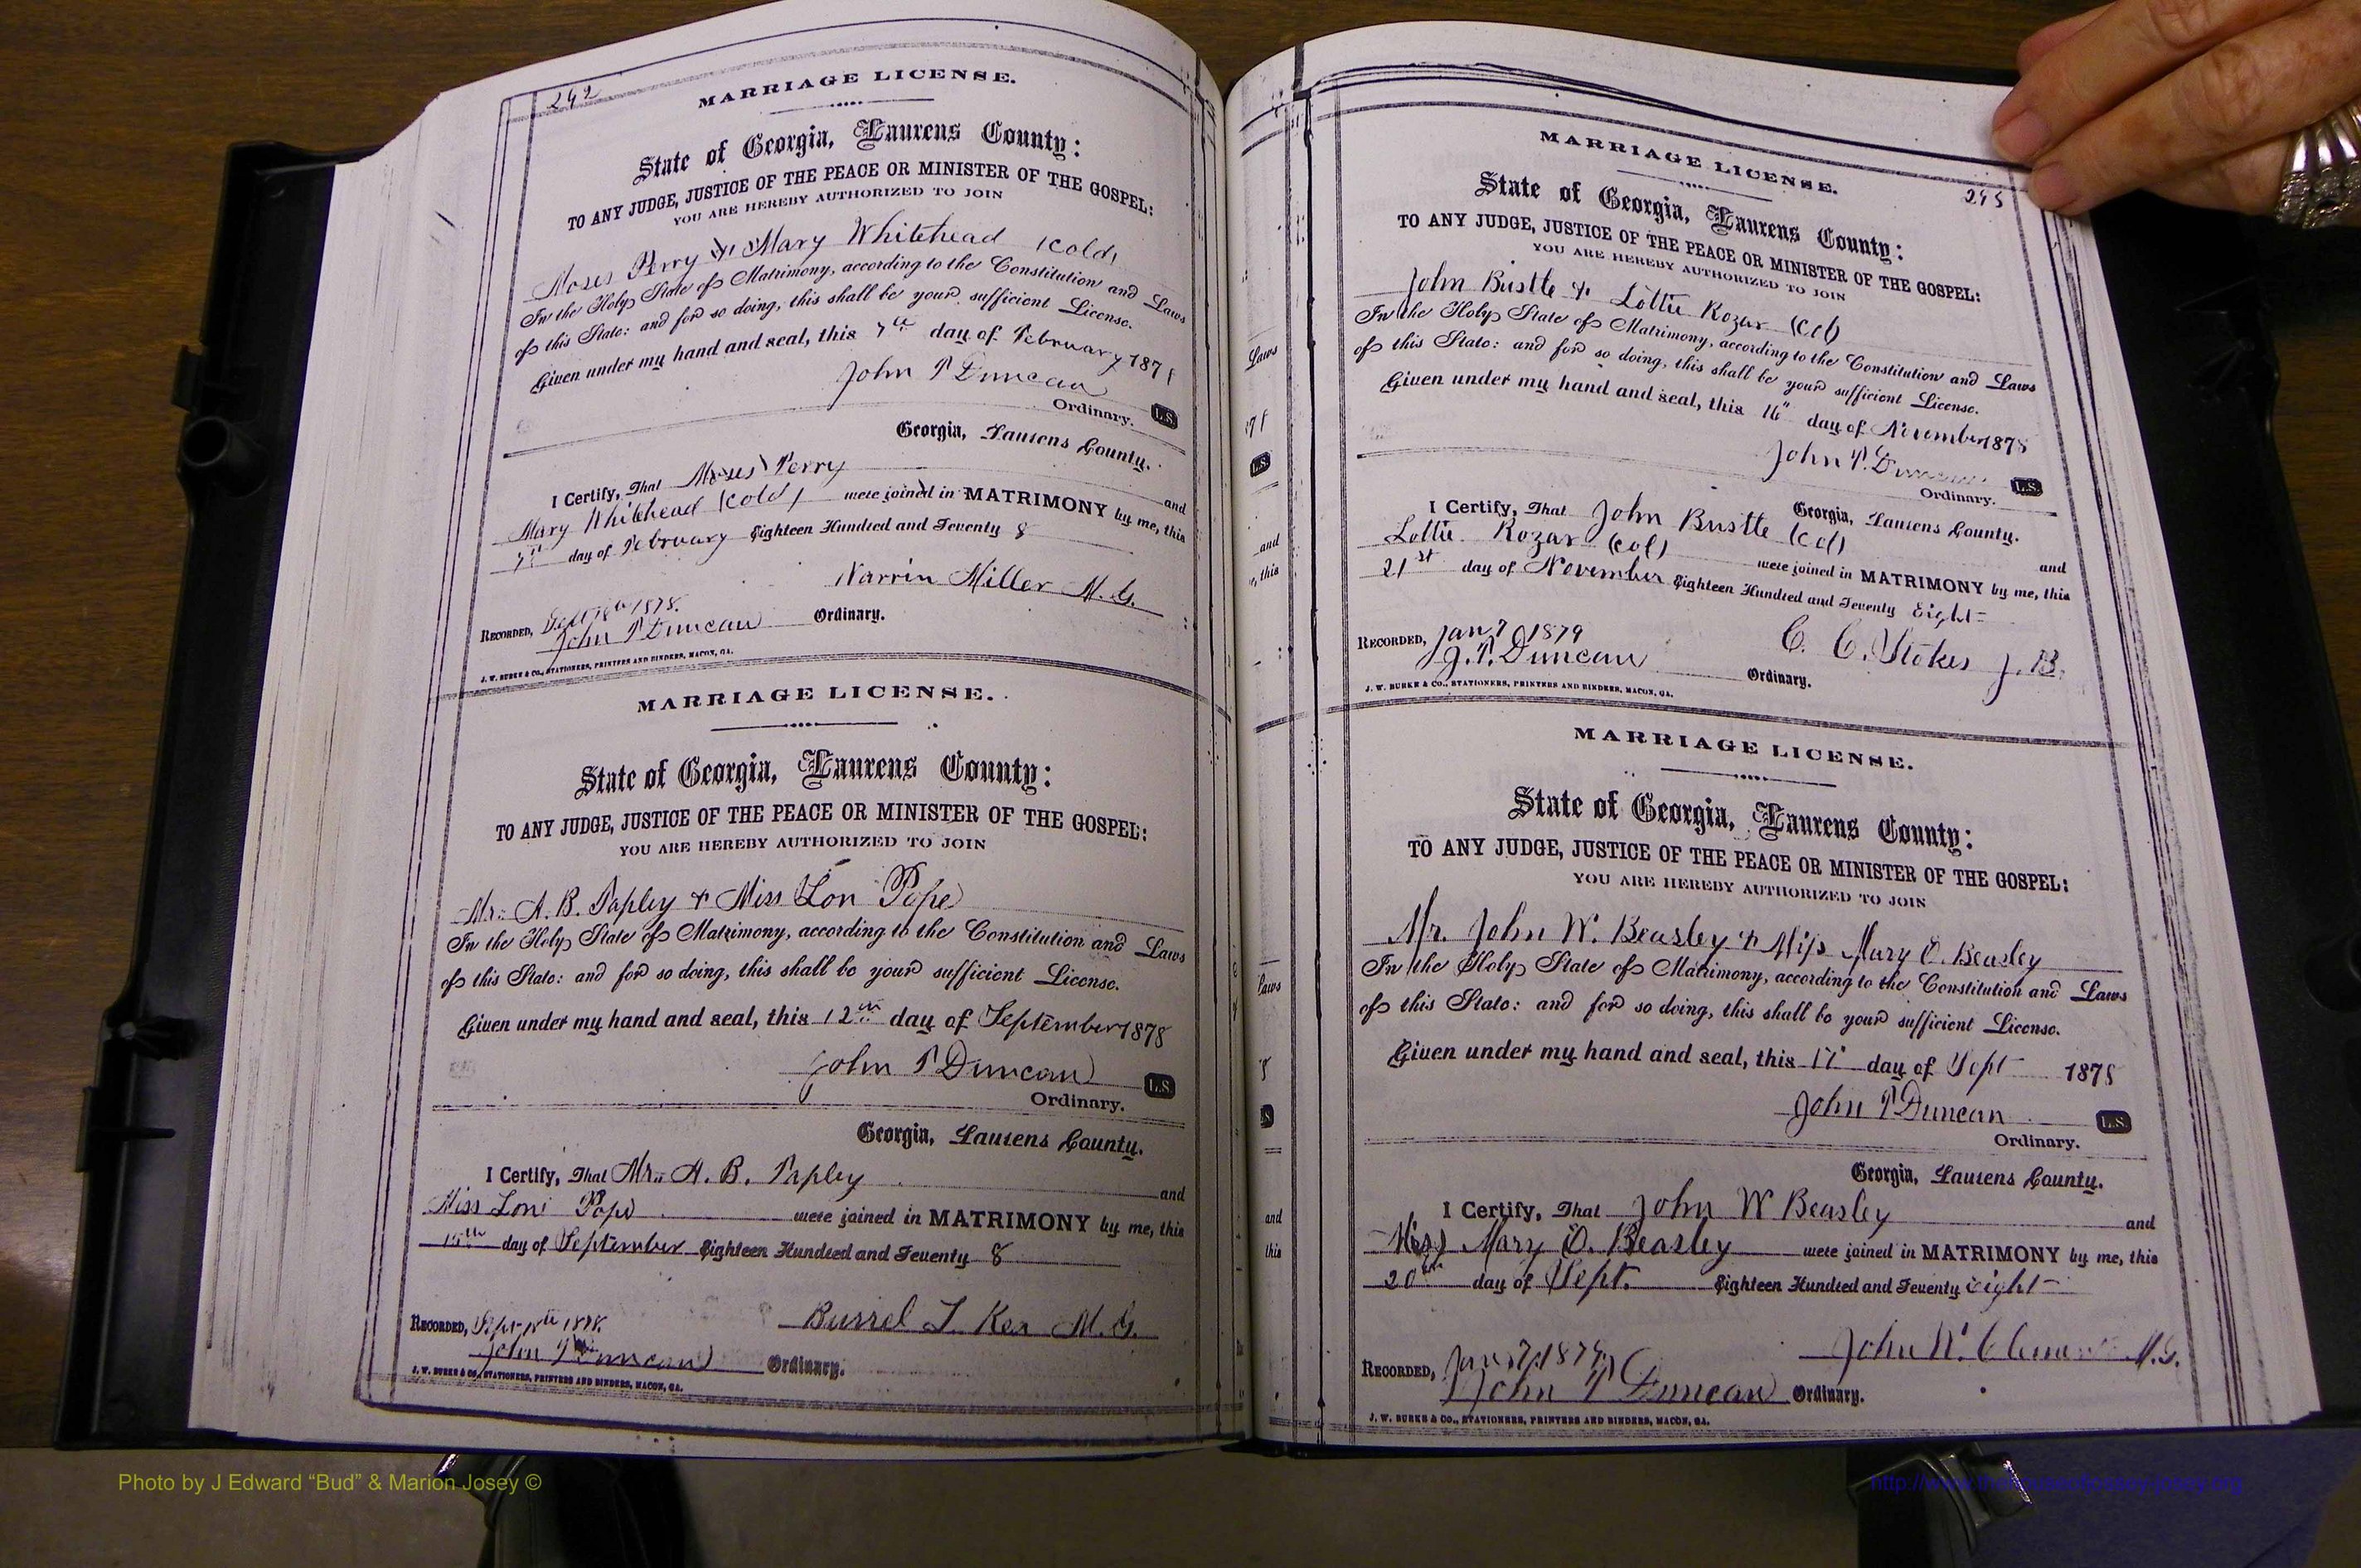 292
MARRIAGE LICENSE.
State of Georgia, Laurens County:
TO ANY JUDGE, JUSTICE OF THE PEACE OR MINISTER OF THE GOSPEL:
YOU ARE HEREBY AUTHORIZED TO JOIN
Moses Perry & Mary Whitehead (Cold)
In the Holy State of Matrimony, according to the Constitution and Laws
of this State: and for so doing, this shall be your sufficient License.
Given under my hand and seal, this 7th day of February 1878
John T Duncan
Ordinary. L.S.
Georgia, Laurens County.
I Certify, That Moses Perry and
Mary Whitehead (Cold) were joined in MATRIMONY by me, this
7th day of February Eighteen Hundred and Seventy 8
Miller M. G.
RECORDED, 1878.
John T Duncan Ordinary.
J. W. BURKE & CO., STATIONERS, PRINTERS AND BINDERS, MACON, GA.
MARRIAGE LICENSE.
State of Georgia, Laurens County:
TO ANY JUDGE, JUSTICE OF THE PEACE OR MINISTER OF THE GOSPEL:
YOU ARE HEREBY AUTHORIZED TO JOIN
Mr. A. B. Tapley & Miss Lon Pope
In the Holy State of Matrimony, according to the Constitution and Laws
of this State: and for so doing, this shall be your sufficient License.
Given under my hand and seal, this 12th day of September 1878
John T Duncan L.S.
Ordinary.
Georgia, Laurens County.
I Certify, That Mr. A. B. Tapley and
Miss Lon Pope were joined in MATRIMONY by me, this
day of September Eighteen Hundred and Seventy 8
Burrel L. Key M. G.
RECORDED, 1878.
John T Duncan Ordinary.
J. W. BURKE & CO., STATIONERS, PRINTERS AND BINDERS, MACON, GA.
MARRIAGE LICENSE.
293
State of Georgia, Laurens County:
TO ANY JUDGE, JUSTICE OF THE PEACE OR MINISTER OF THE GOSPEL:
YOU ARE HEREBY AUTHORIZED TO JOIN
John Bustle & Lottie Kozar (Col)
In the Holy State of Matrimony, according to the Constitution and Laws
of this State: and for so doing, this shall be your sufficient License.
Given under my hand and seal, this 16" day of November 1878
John T. Duncan L.S.
Ordinary.
Georgia, Laurens County.
I Certify, That John Bustle (Col) and
Lottie Kozar (Col) were joined in MATRIMONY by me, this
21st day of November Eighteen Hundred and Seventy Eight
C. C. Stokes J. P.
RECORDED, Jan 7 1879
J. T. Duncan Ordinary.
J. W. BURKE & CO., STATIONERS, PRINTERS AND BINDERS, MACON, GA.
MARRIAGE LICENSE.
State of Georgia, Laurens County:
TO ANY JUDGE, JUSTICE OF THE PEACE OR MINISTER OF THE GOSPEL:
YOU ARE HEREBY AUTHORIZED TO JOIN
Mr. John W. Beasley & Miss Mary O. Beasley
In the Holy State of Matrimony, according to the Constitution and Laws
of this State: and for so doing, this shall be your sufficient License.
Given under my hand and seal, this 17" day of Sept 1878
John T Duncan L.S.
Ordinary.
Georgia, Laurens County.
I Certify, That John W Beasley and
Miss Mary O. Beasley were joined in MATRIMONY by me, this
20th day of Sept. Eighteen Hundred and Seventy eight
John W. M. G.
RECORDED, Jan 7, 1879,
John T Duncan Ordinary.
J. W. BURKE & CO., STATIONERS, PRINTERS AND BINDERS, MACON, GA.
Photo by J Edward “Bud” & Marion Josey ©